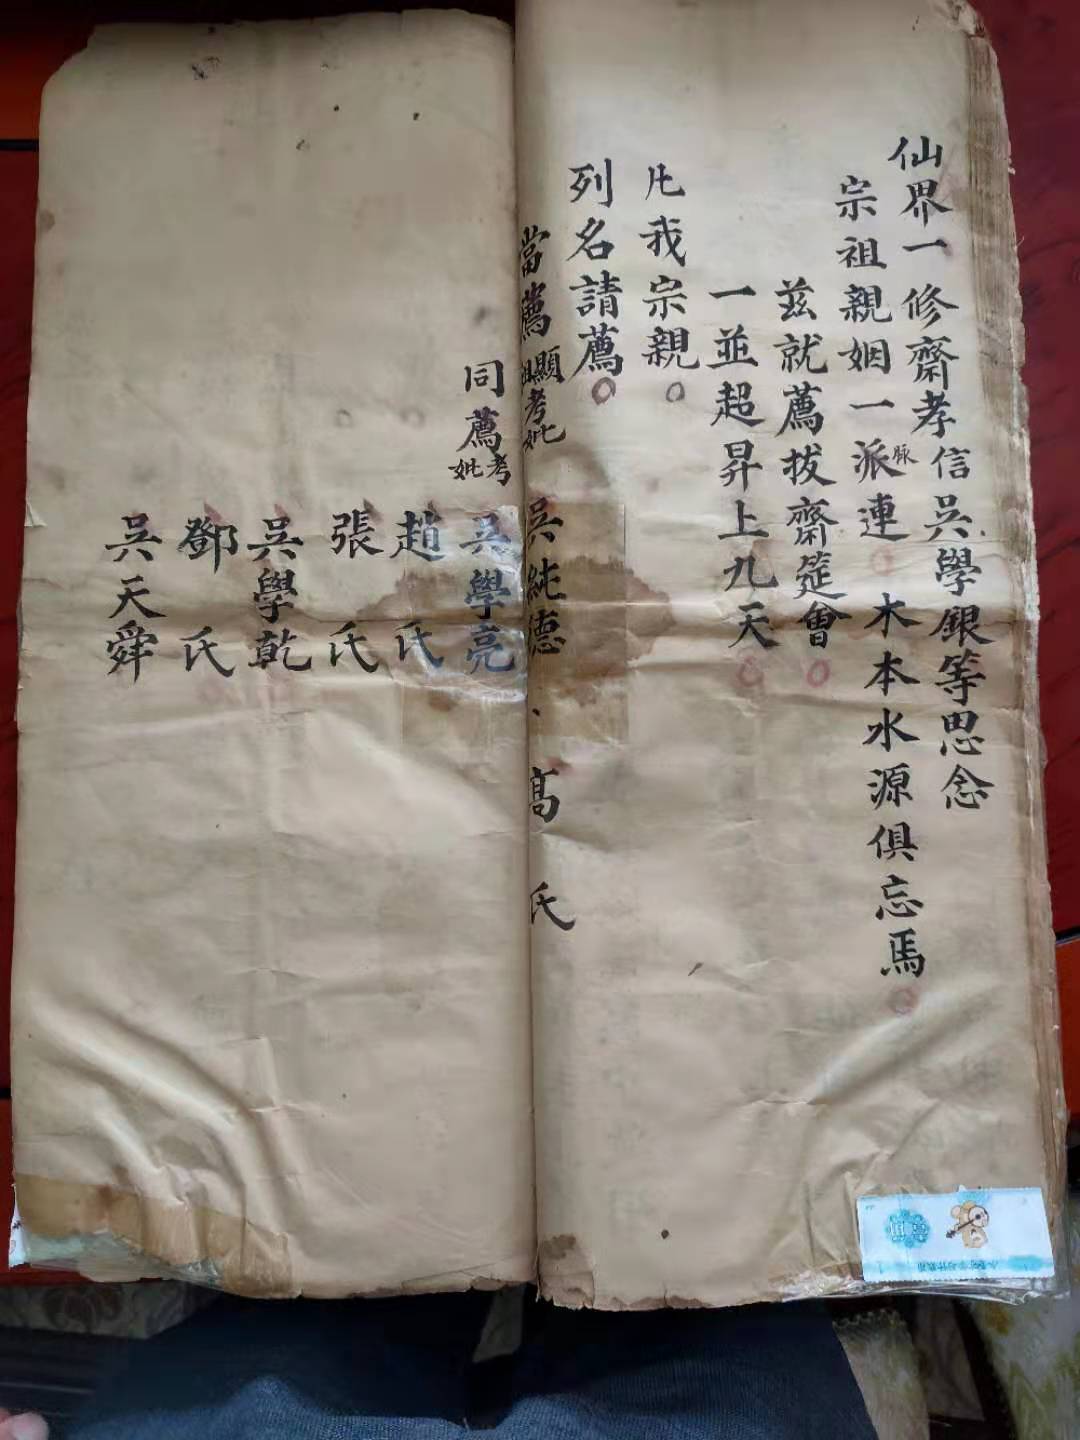 仙界一修齋孝信吳學銀等思念
宗祖親姻一派脈連木本水源俱忘焉
茲就薦拔齋筵會
一並超昇上九天
凡我宗親
列名請薦
當薦顯祖考妣吳純德、高氏
同薦考妣吳學亮
趙氏
張氏
吳學乾
鄧氏
吳天舜